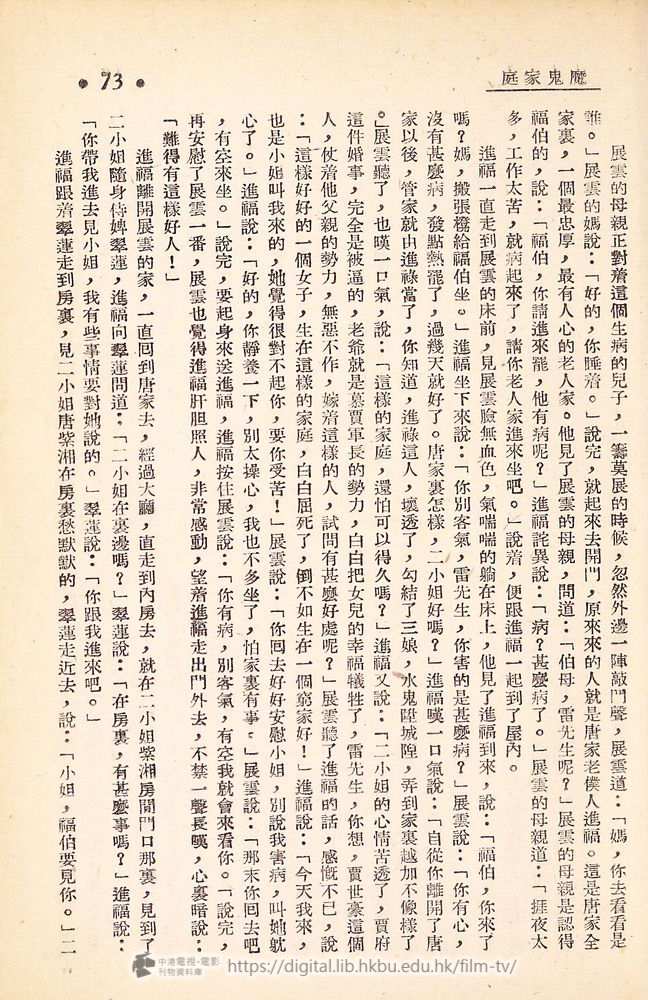 魔鬼家庭
• 73 •
展雲的母親正對着這個生病的兒子，一籌莫展的時候，忽然外邊一陣敲門聲，展雲道：「媽，你去看看是
誰。」展雲的媽說：「好的，你睡着。」說完，就起來去開門，原來來的人就是唐家老僕人進福。這是唐家全
家裏，一個最忠厚，最有人心的老人家。他見了展雲的母親，問道：「伯母，雷先生呢？」展雲的母親是認得
福伯的，說：「福伯，你請進來罷，他有病呢？」進福詫異說：「病？甚麼病了。」展雲的母親道：「捱夜太
多，工作太苦，就病起來了，請你老人家進來坐吧。」說着，便跟進福一起到了屋內。
進福一直走到展雲的床前，見展雲臉無血色，氣喘喘的躺在床上，他見了進福到來，說：「福伯，你來了
嗎？媽，搬張櫈給福伯坐。」進福坐下來說：「你別客氣，雷先生，你害的是甚麼病？」展雲說：「你有心，
沒有甚麼病，發點熱罷了，過幾天就好了。唐家裏怎樣，二小姐好嗎？」進福嘆一口氣說：「自從你離開了唐
家以後，管家就由進祿當了，你知道，進祿這人，壞透了，勾結了三娘，水鬼陞城隍，弄到家裏越加不像樣了
。」展雲聽了，也嘆一口氣，說：「這樣的家庭，還怕可以得久嗎？」進福又說：「二小姐的心情苦透了，賈府
這件婚事，完全是被逼的，老爺就是慕賈軍長的勢力，白白把女兒的幸福犧牲了，雷先生，你想，賈世豪這個
人，仗着他父親的勢力，無惡不作，嫁着這樣的人，試問有甚麼好處呢？」展雲聽了進福的話，感慨不已，說
：「這樣好好的一個女子，生在這樣的家庭，白白屈死了，倒不如生在一個窮家好！」進福說：「今天我來，
也是小姐叫我來的，她覺得很對不起你，要你受苦！」展雲說：「你回去好好安慰小姐，別說我害病，叫她躭
心了。」進福說：「好的，你靜養一下，別太操心，我也不多坐了，怕家裏有事。」展雲說：「那末你回去吧
，有空來坐。」說完，要起身來送進福，進福按住展雲說：「你有病，別客氣，有空我就會來看你。」說完，
再安慰了展雲一番，展雲也覺得進福肝胆照人，非常感動，望着進福走出門外去，不禁一聲長嘆，心裏暗說：
「難得有這樣好人！」
進福離開展雲的家，一直回到唐家去，經過大廳，直走到內房去，就在二小姐紫湘房開門口那裏，見到了
二小姐隨身侍婢翠蓮，進福向翠蓮問道：「二小姐在裏邊嗎？」翠蓮說：「在房裏，有甚麼事嗎？」進福說：
「你帶我進去見小姐，我有些事情要對她說的。」翠蓮說：「你跟我進來吧。」
進福跟着翠蓮走到房裏，見二小姐唐紫湘在房裏愁默默的，翠蓮走近去，說：「小姐，福伯要見你。」二
中港電視-電影
刊物資料庫
https://digital.lib.hkbu.edu.hk/film-tv/